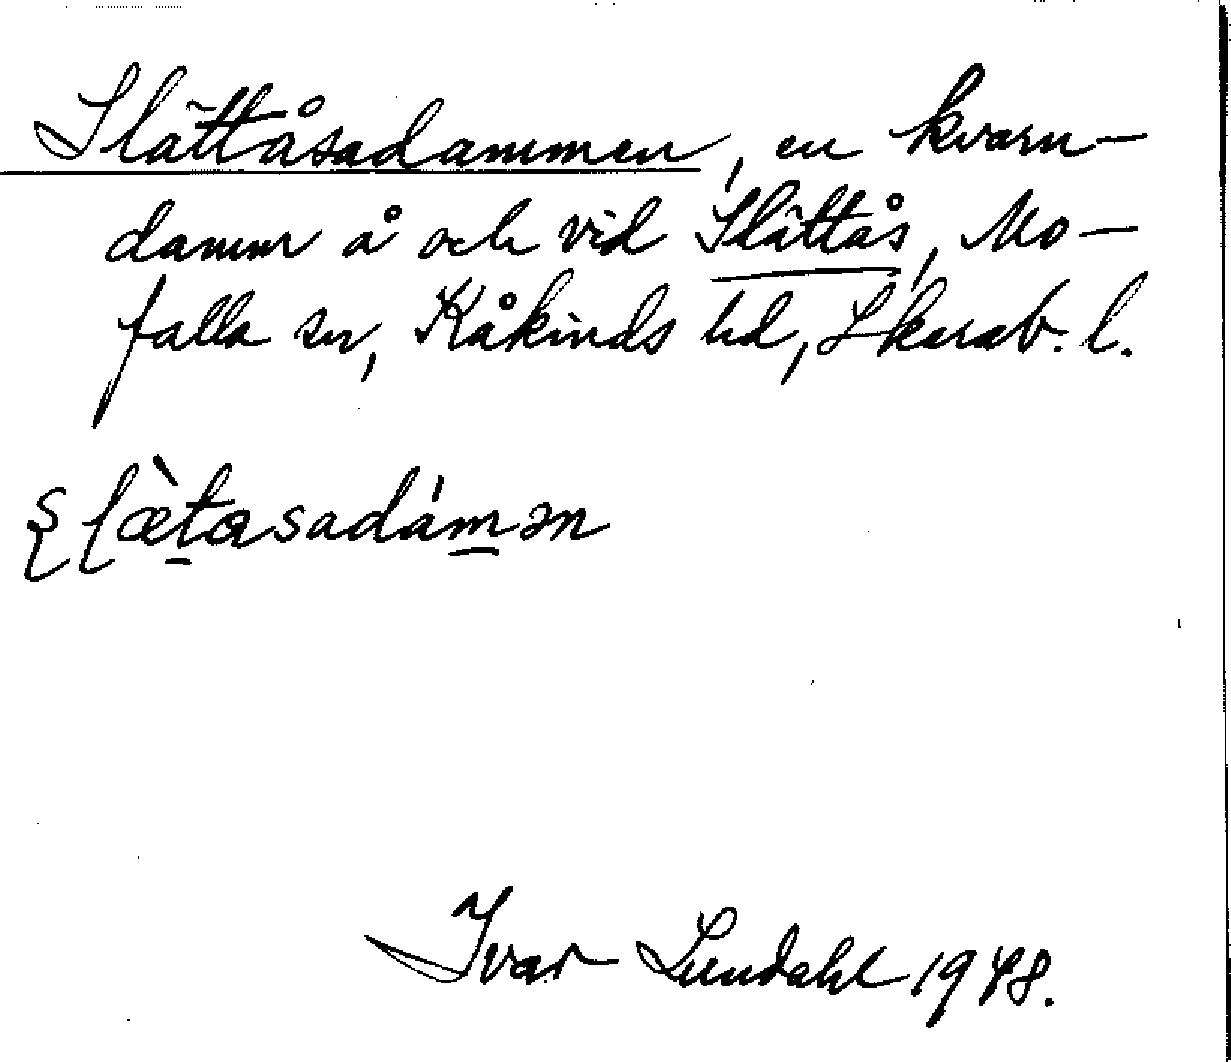 Slättåsadammen, en kvarn-
damm å och vid Slättås, Mo-
falla sn, Kåkinds hd, Skarab. l.
ʂlæ̀t̠asadám̠ən
Ivar Lundahl 1948.